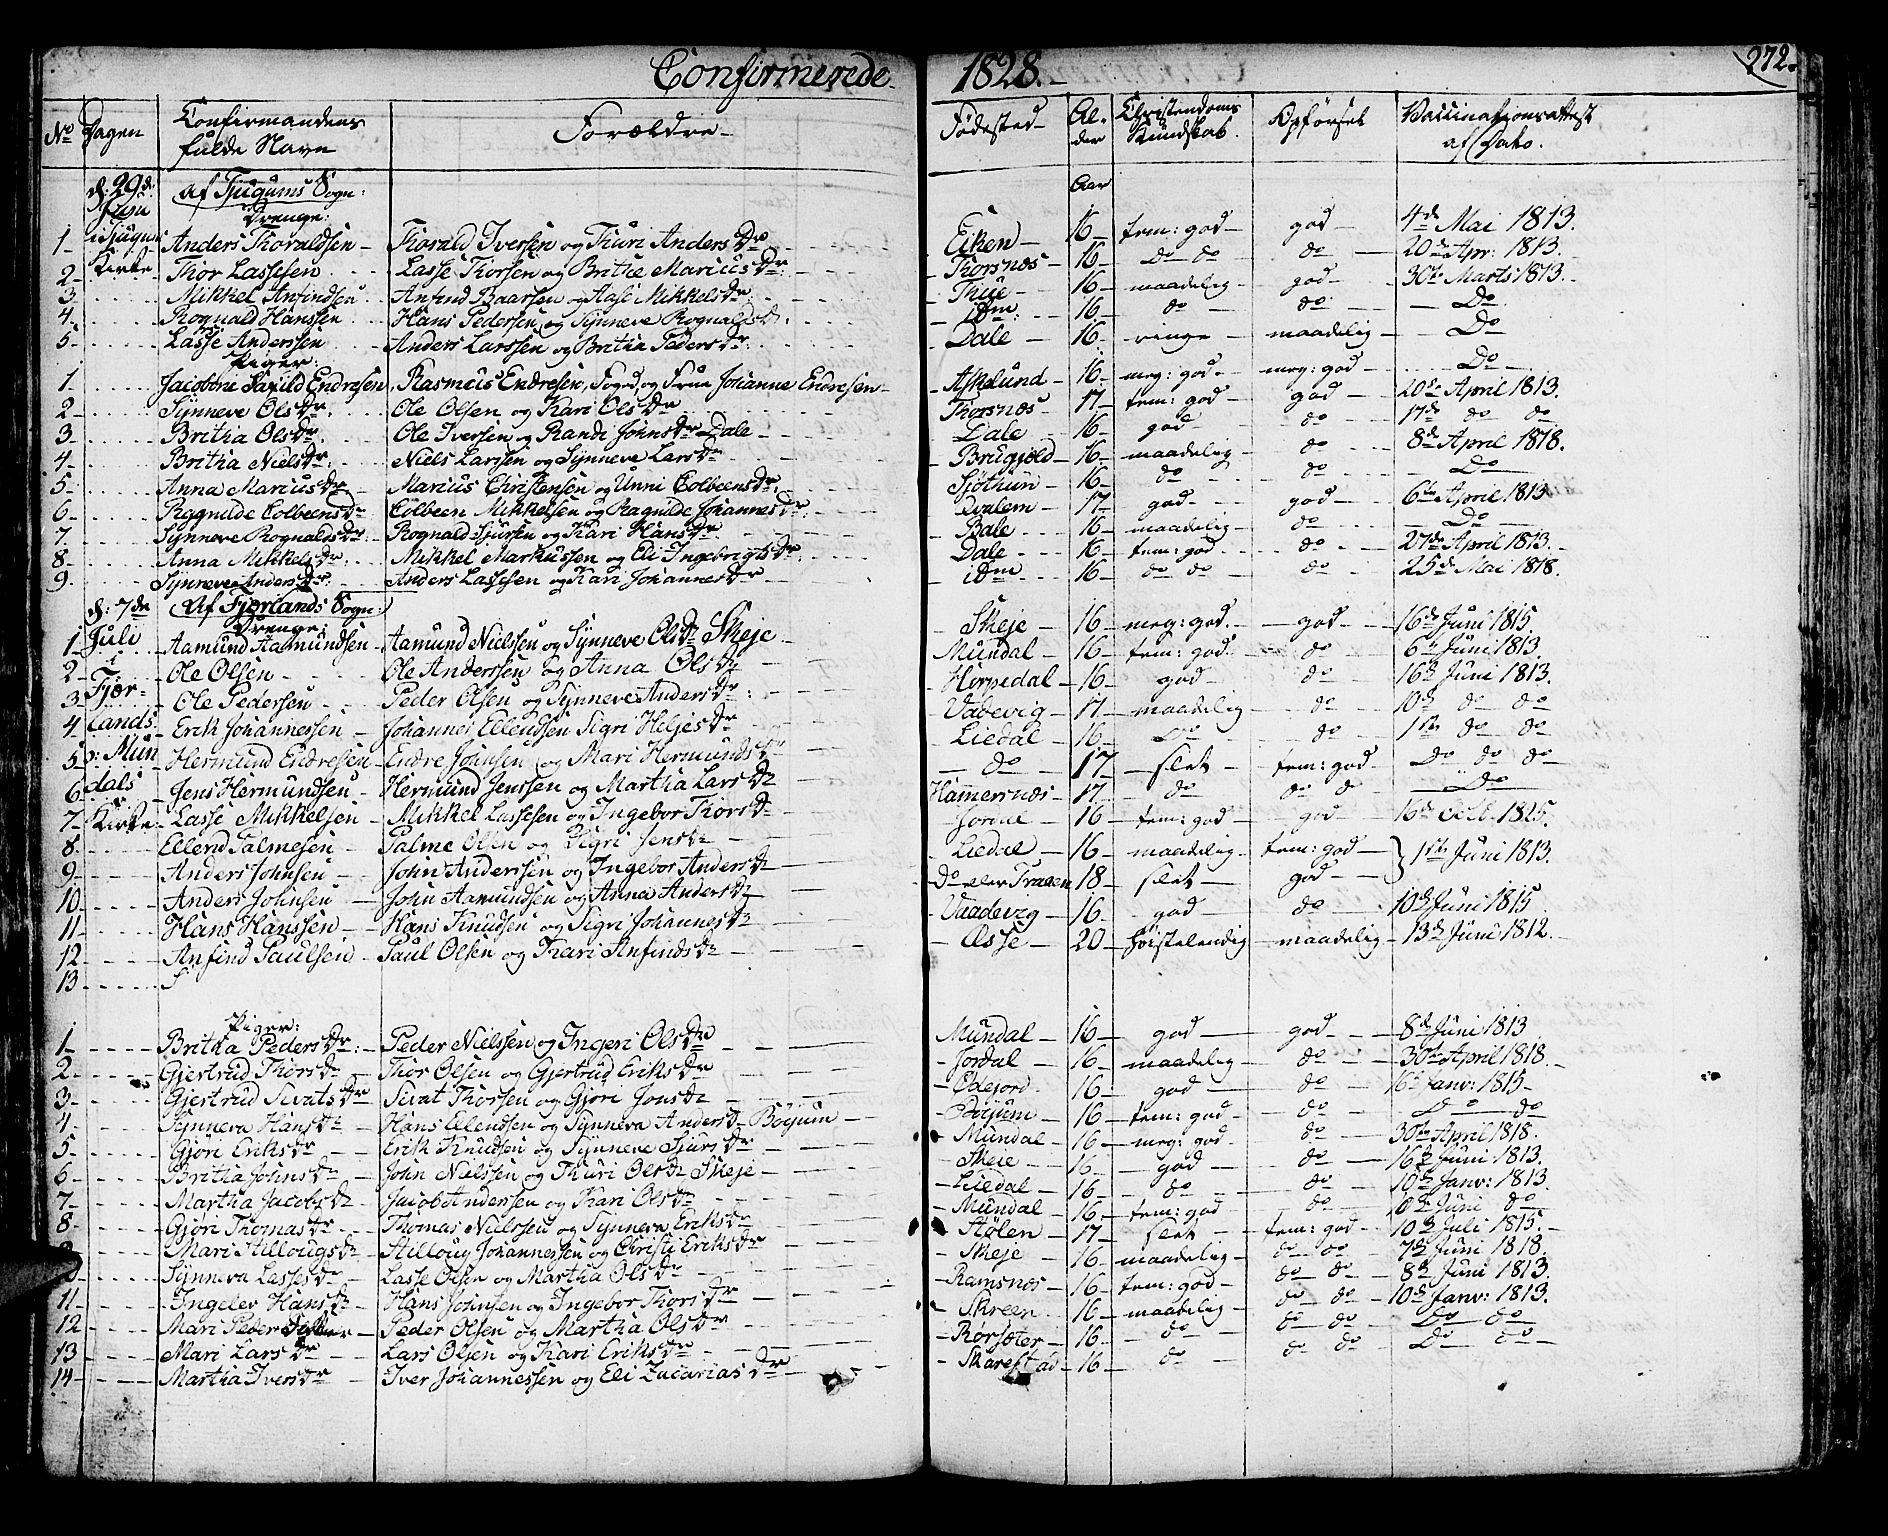 Confirmerede 1828. 272.
No Dagen Confirmandens fulde Navn Forældre Fødested Alder Christendoms Kundskab Opførsel Vaccinationsattest af Dato.
d: 29de Juni i Tjugum Kirke af Tjugums Sogn: Aar
Drenge:
1 Anders Thoraldsen Thorald Iversen og Thuri Andersdr Eiken 16 tem: god god 4de Mai 1813.
2 Thor Lassesen Lasse Thorsen og Brithe Mariusdr Thorsnæs 16 do do do 20de Apr: 1813.
3 Mikkel Anfindsen Anfind Baarsen og Aase Mikkelsdr Thue 16 maadelig god 30te Marts 1813.
4 Rognald Hanssen Hans Pedersen og Synneve Rognaldsd: idm: 16 do do Do
5 Lasse Anderssen Anders Larssen og Britha Pedersdr Dale 16 ringe maadelig Do
Piger:
1 Jacobine Endresen Rasmus Endresen, Foged, og Frue Johanne Endresen Askelund 16 meg: god meg: god Do
2 Synneve Olsdr Ole Olsen og Kari Olsdr Thorsnæs 17 tem: god god 20de April 1813.
3 Britha Olsdr Ole Iversen og Randi Johnsdr Dale Dale 16 god do 17de do do
4 Britha Nielsdr Niels Larssen og Synneve Larsdr 16 maadelig do 8de April 1818.
5 Anna Mariusdr Marius Christensen og Unni Colbeensdr Sjøthun 16 do do Do
6 Ragnilde Colbeensdr Colbeen Mikkelsen og Ragnilde Johannesdr 17 god god 6te April 1813
7 Synneve Rognaldsdr Rognald Sjursen og Kari Hansdr Bale 16 maadelig do Do
8 Anna Mikkelsdr Mikkel Markussen og Eli Ingebrigtsdr Dale 16 tem: god do 27de April 1813.
9 Synneve Andersdr Anders Lassesen og Kari Johannesdr idm 16 do do do 25de Mai 1818.
d: 7de Juli i Fjærlands o: Mundals Kirke Af Fjerlands Sogn:
Drenge:
1 Aamund Aamundsen Aamund Nielssen og Synneve Olsdr Skeje Skeje 16 meg: god god 16de Juni 1815.
2 Ole Olsen Ole Anderssen og Anna Olsdr Mundal 16 tem: god do 6te Juni 1813.
3 Ole Pedersen Peder Olsen og Synneve Andersdr Horpedal 16 god do 16de Juni 1813.
4 Erik Johannessen Johannes Ellendsen Sigri Heljesdr Vadevig 17 maadelig do 10de do do
5 Hermund Endresen Endre Johnsen og Mari Hermundsdr Liedal 16 Do do 1ste do do
6 Jens Hermundsen Hermund Jenssen og Martha Larsdr do 17 slet tem: god Do do do
7 Lasse Mikkelsen Mikkel Lassesen og Ingebor Thorsdr Hamersnæs 17 do do do Do
8 Ellend Palmesen Palme Olsen og Sigri Jensdr Jordal 16 tem: god god 16de Oct: 1825.
9 Anders Johnsen John Anderssen og Ingebor Andersdr Liedal 16 maadelig tem: god 1ste Juni 1813.
10 Anders Johnsen John Aamundsen og Anna Andersdr Do eller 18 slet god
11 Hans Hanssen Hans Knudsen og Sigri Johannesdr Vaadevig 16 god do 10de Juni 1815
12 Anfind Paulsen Paul Olsen og Kari Anfindsdr Øsse 20 høistelendig maadelig 13de Juni 1812.
13
Piger:
1 Britha Pedersdr Peder Nielssen og Ingeri Olsdr Mundal 16 god god 8de Juni 1813
2 Gjertrud Thorsdr Thor Olsen og Gjertrud Eriksdr Jordal 16 maadelig do 30te April 1818.
3 Gjertrud Sivatsdr Sivat Thorsen og Gjøri Jonsdr Ødejord 16 god do 16de Janv: 1815
4 Synneva Hansdr Hans Ellendsen og Synneva Andersdr Bøyum Bøyum 16 tem: god do Do do
5 Gjøri Eriksdr Erik Knudsen og Synneve Sjursdr Mundal 16 meg: god do 30te April 1818.
6 Britha Johnsdr John Nielssen og Thuri Olsdr Skeje Skeie 16 god do 16de Juni 1813.
7 Martha Jacobsdr Jacob Andersen og Kari Olsdr Liedal 16 do do 10de Janv: 1813.
8 Gjøri Thomasdr Thomas Nielssen og Synneva Eriksdr Mundal 16 tem: god do Juni do
9 Mari Hillougsdr Hilloug Johannessen og Christi Eriksdr Stølen 17 slet tem: god 10de Juli 1815.
Synneva Lassesdr Lasse Olsen og Martha Olsdr Skeje 16 maadelig do do 7de Juni 1818.
11 Ingelev Hansdr Hans Johnsen og Ingebor Thorsdr Ramsnæs 16 tem: god do do 8de Juni 1813.
12 Mari Peder Peder Olsen og Martha Olsdr Skreen 16 maadelig do do 10de Janv: 1813.
13 Mari Larsdr Lars Olsen og Kari Eriksdr Rørsæter 16 do do do Do do
14 Martha Iversdr Iver Johannessen og Eli Zacariasdr Skarestad 16 do do do Do do